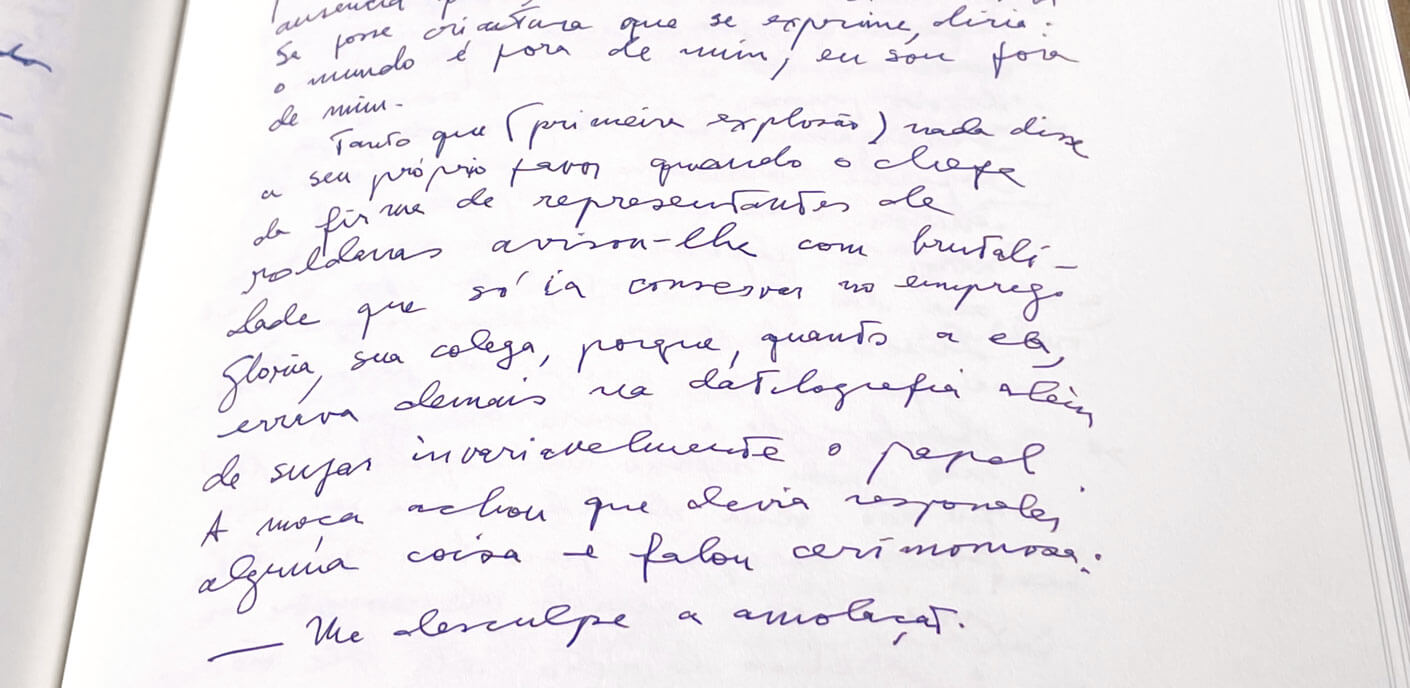 ausência
Se fosse criatura que se exprime, diria:
o mundo é fora de mim, eu sou fora
de mim.
Tanto que (primeira explosão) nada disse
a seu próprio favor quando o chefe
da firma de representantes de
roldanas avisou-lhe com brutali-
dade que só ia conservar no emprego
Glória, sua colega, porque, quanto a ela,
errava demais na datilografia além
de sujar invariavelmente o papel.
A moça achou que devia responder
alguma coisa e falou cerimoniosa:
— Me desculpe a amolação.